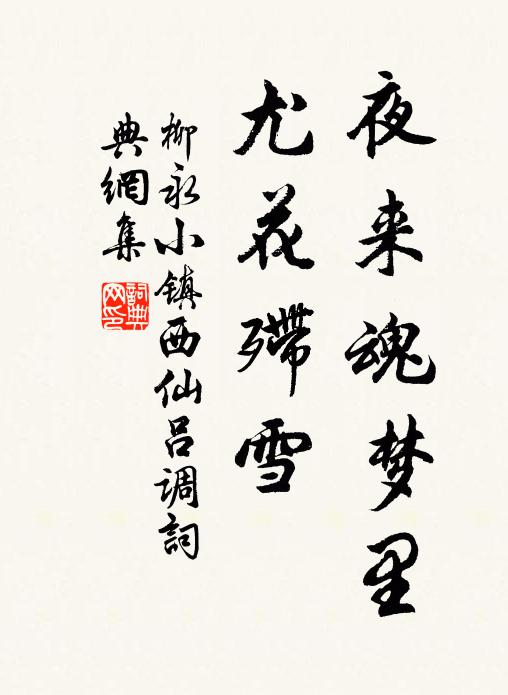 夜来魂梦里
尤花殢雪
柳永小镇西仙吕调詞
典網集
詞典网印